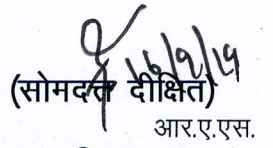 16/9/19
(सोमदत्त दीक्षित)
आर.ए.एस.